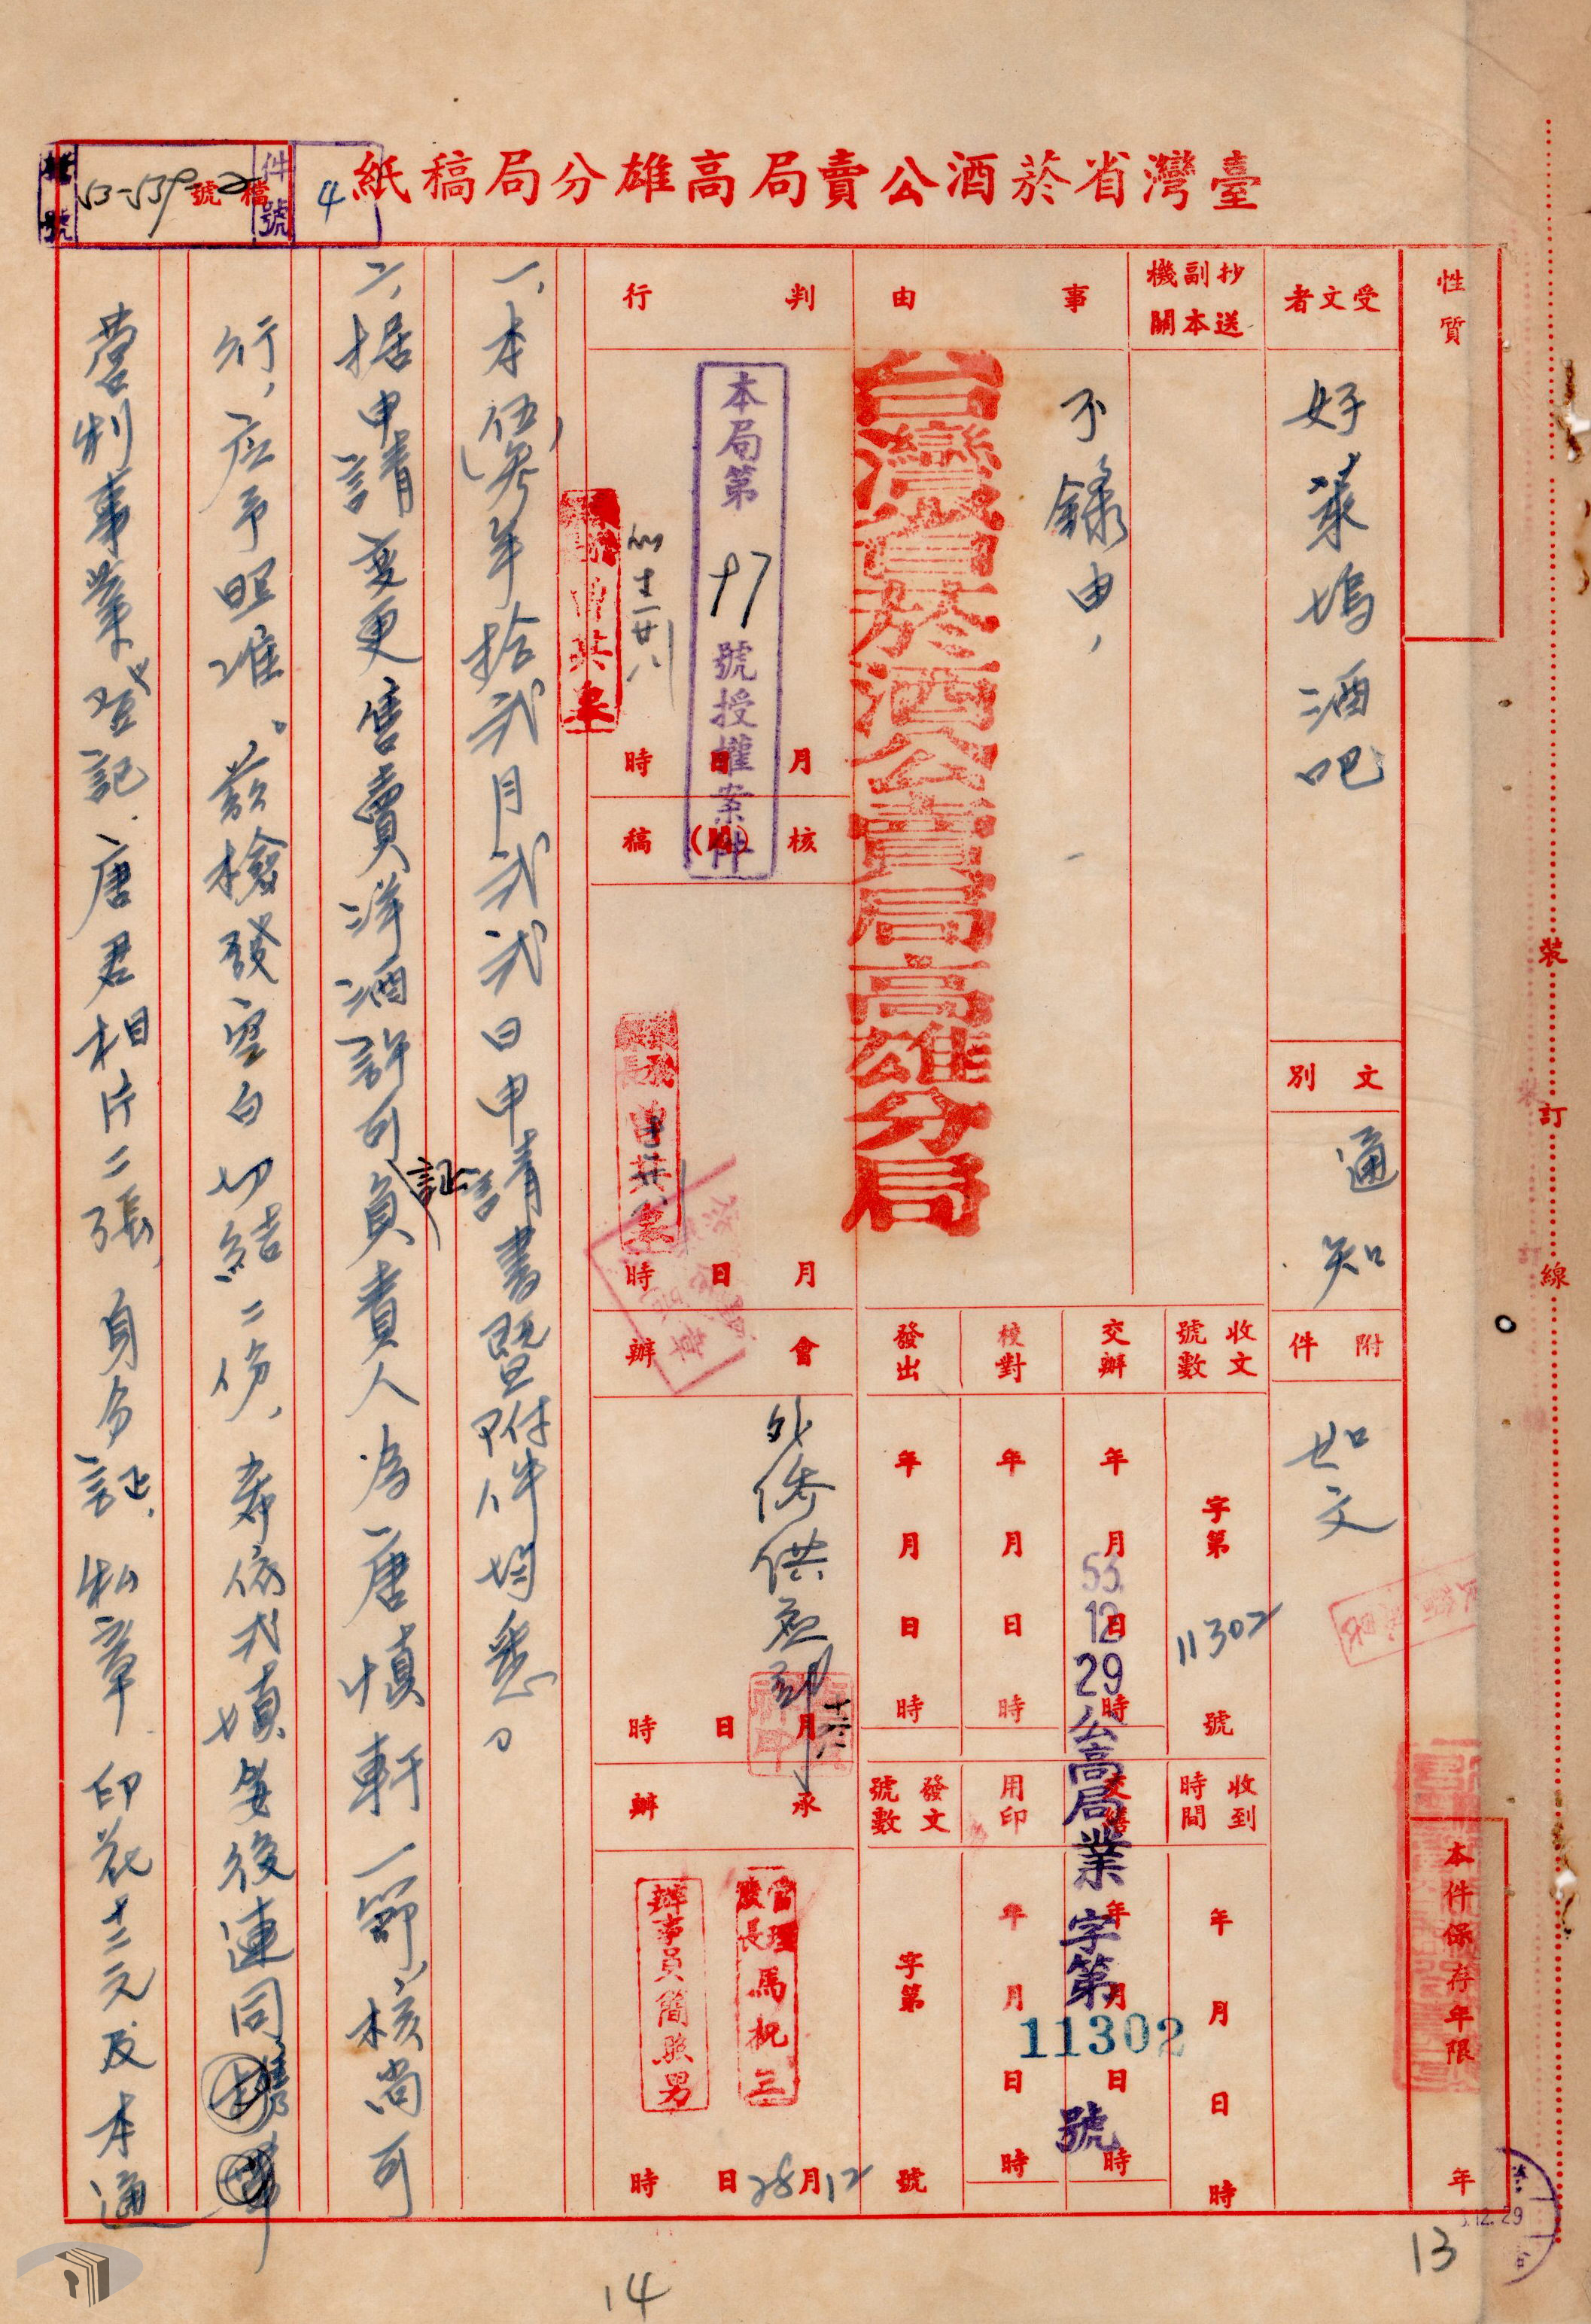 臺灣省菸酒公賣局高雄分局稿紙
件號
檔號
53-539
號
檔
4
性質
本件保存年限
年
受文者
好萊塢酒吧
文別
通知
附件
如文
抄送
副本
機關
事由
不錄由,
台灣省菸酒公賣局高雄分局
收文號數
字第
11302
號
交辦
年月日時
校對
年月日時
發出
年月日時
收到時間
年月日時
交繕
年月日時
用印
年月日時
發文號數
字第
號
53.12.29公高局業字第11302號
判行
本局第
17
號授權案件
月日時
核稿
月日時
會辦
月日時
承辦
管理股長馬祝三
辦事員簡照男
12月28日時
一、本(伍參)年拾弍月弍弍日申請書暨附件均悉。
二、据申請變更售賣洋酒許可證負責人為唐慎軒一節,核尚可
行,应予照准。茲檢發空白切結二份,希依式填妥後連同
營利事業登記.唐君相片二張,身分証.私章.印花十二元及本通
裝
訂
線
13
14
12.29